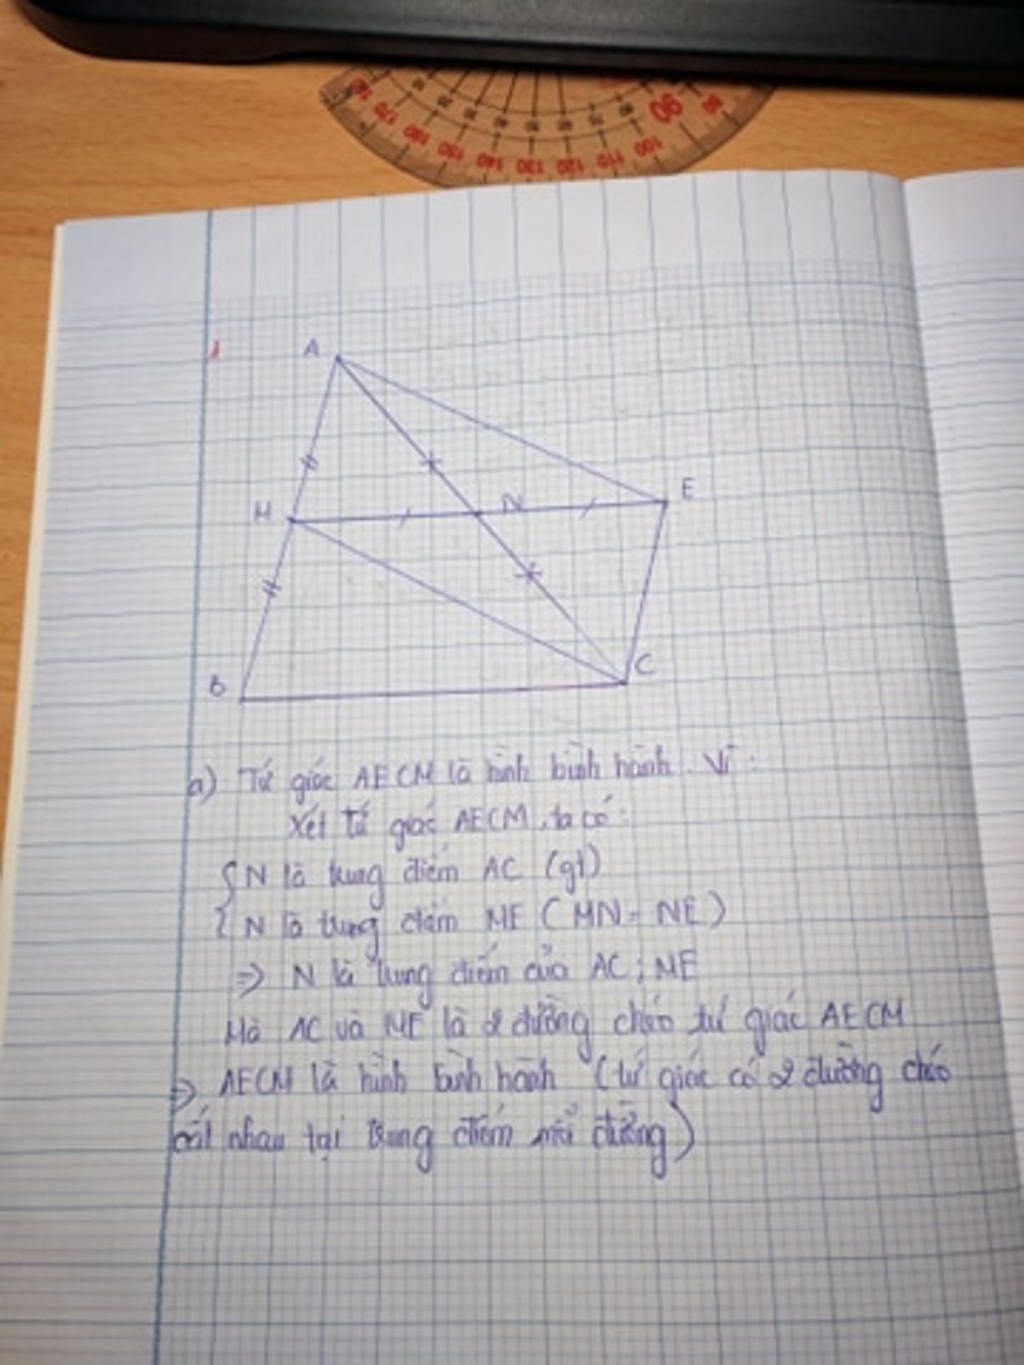 170 160 150 140 130 120 110 100 90 80
1
A
E
N
M
C
B
a) Tứ giác AECM là hình bình hành. Vì :
Xét tứ giác AECM, ta có :
{ N là trung điểm AC (gt)
N là trung điểm ME ( MN = NE )
=> N là trung điểm của AC ; ME
Mà AC và ME là 2 đường chéo tứ giác AECM
=> AECM là hình bình hành ( tứ giác có 2 đường chéo
cắt nhau tại trung điểm mỗi đường )